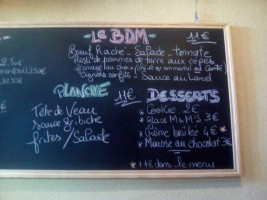 - LE BDM - 11€
Bœuf Haché - Salade - tomate
Plos de pommes de terre aux cepes
fromage au choix
oignons confits - Sauce au Lard
2,50€
3,50€
PLANCHE 11€
Tête de Veau
sauce gribiche
frites / Salade
DESSERTS
* Cookie 2€
* Glace M&M's 3€
* Crème brûlée 4€
* Mousse au chocolat 3€
+1€ dans le menu